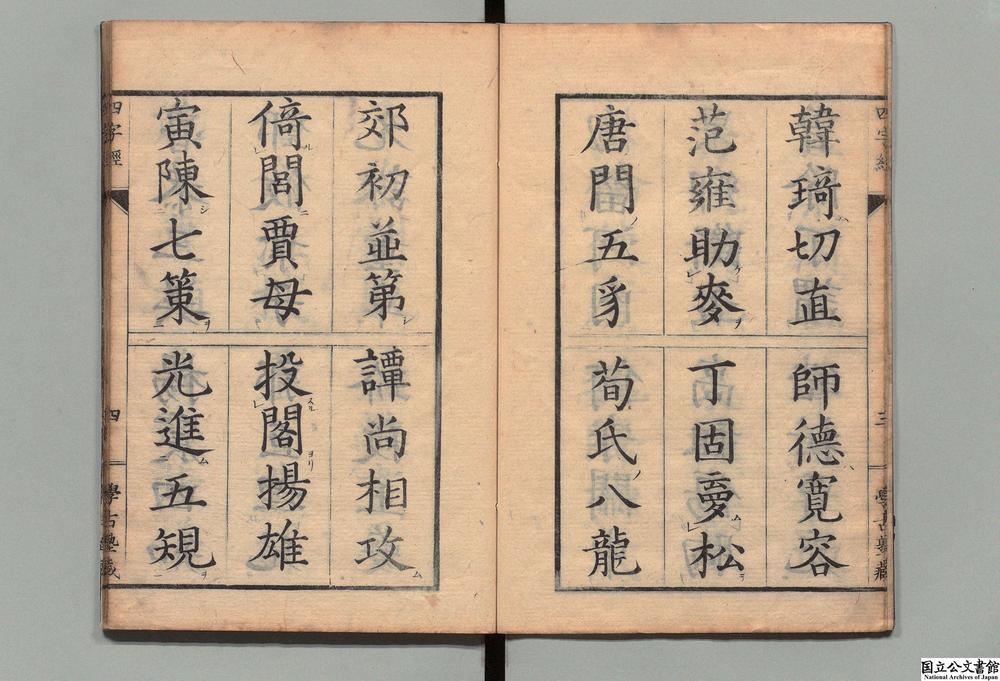 韓琦切直 師德寛容
范雍助麥 丁固夢松
唐門五豸 荀氏八龍
三
學古塾藏
四字經
郊祁並第 譚尚相攻
倚閭賈母 投閣揚雄
寅陳七策 光進五規
四字經
四
學古塾藏
国立公文書館
National Archives of Japan